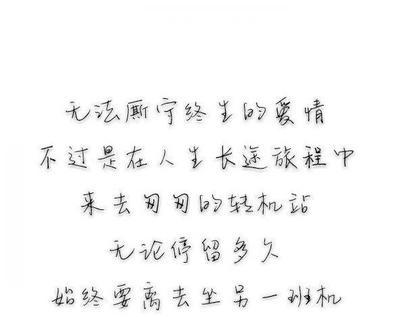 无法厮守终生的爱情
不过是在人生长途旅程中
来去匆匆的转机站
无论停留多久
始终要离去坐另一班机